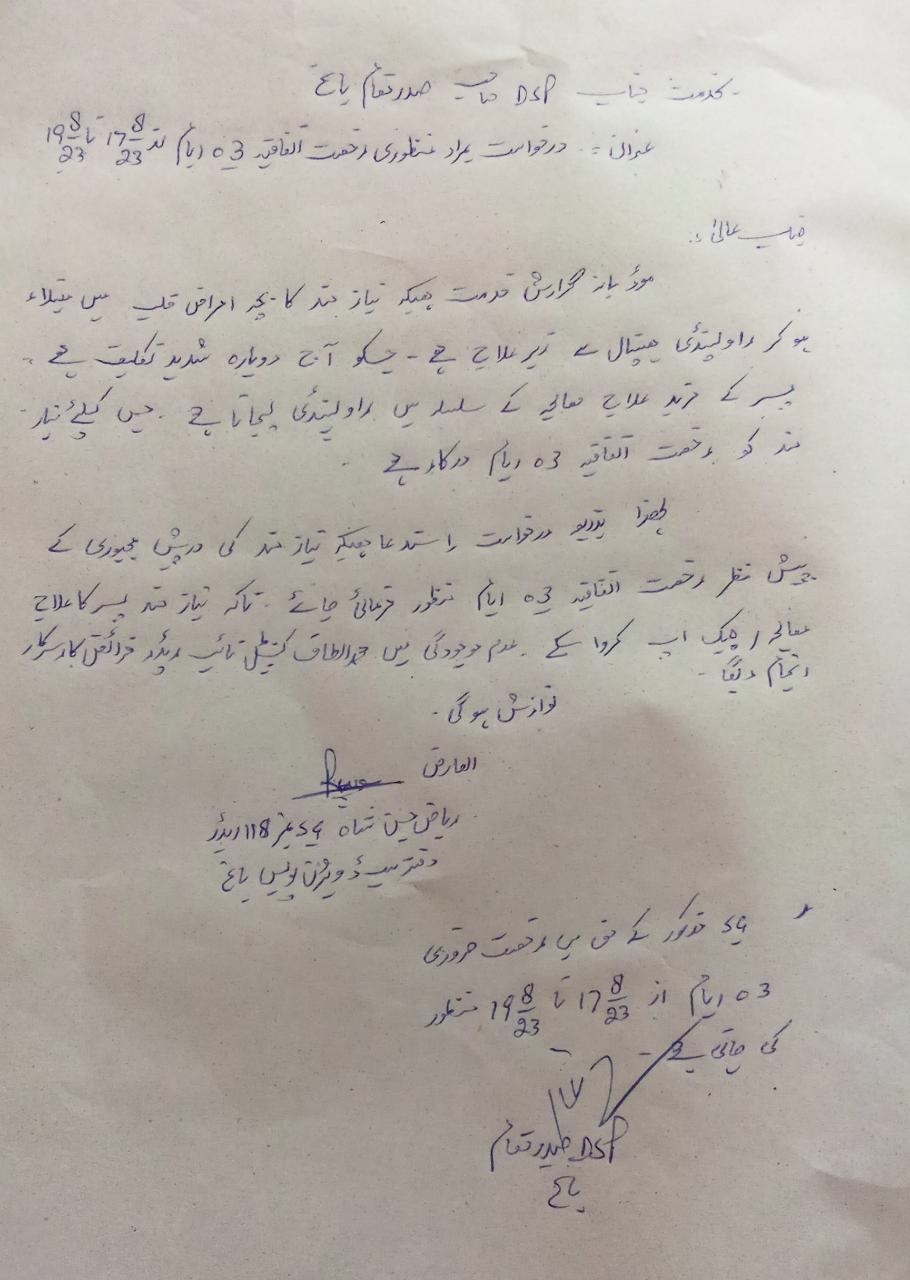 بخدمت جناب DSP صاحب صدر مقام باغ
عنوان :- درخواست بمراد منظوری رخصت اتفاقیہ 03 ایام از 17 8/23 تا 19 8/23
جناب عالی!
مؤدبانہ گزارش خدمت ہیکہ نیاز مند کا بچہ امراض قلب میں مبتلاء
ہو کر راولپنڈی ہسپتال سے زیر علاج ہے - جسکو آج دوبارہ شدید تکلیف ہے -
پسر کے مزید علاج معالجہ کے سلسلہ میں راولپنڈی لیجانا ہے . جس کیلئے نیاز
مند کو رخصت اتفاقیہ 03 ایام درکار ہے
لہذا بذریعہ درخواست استدعا ہیکہ نیاز مند کی درپیش مجبوری کے
پیش نظر رخصت اتفاقیہ 03 ایام منظور فرمائی جائے - تاکہ نیاز مند پسر کا علاج
معالجہ / چیک اپ کروا سکے . عدم موجودگی میں محمد الطاف کنسٹیبل نائب ریڈر فرائض کار سرکار
انجام دیگا -
نوازش ہو گی -
العارض
ریاض حسین شاہ نمبر 118 ریڈر
دفتر سب ڈویژن پولیس باغ
مذکور کے حق میں رخصت ضروری
03 ایام از 17 8/23 تا 19 8/23 منظور
کی جاتی ہے -
DSP صدر مقام
باغ